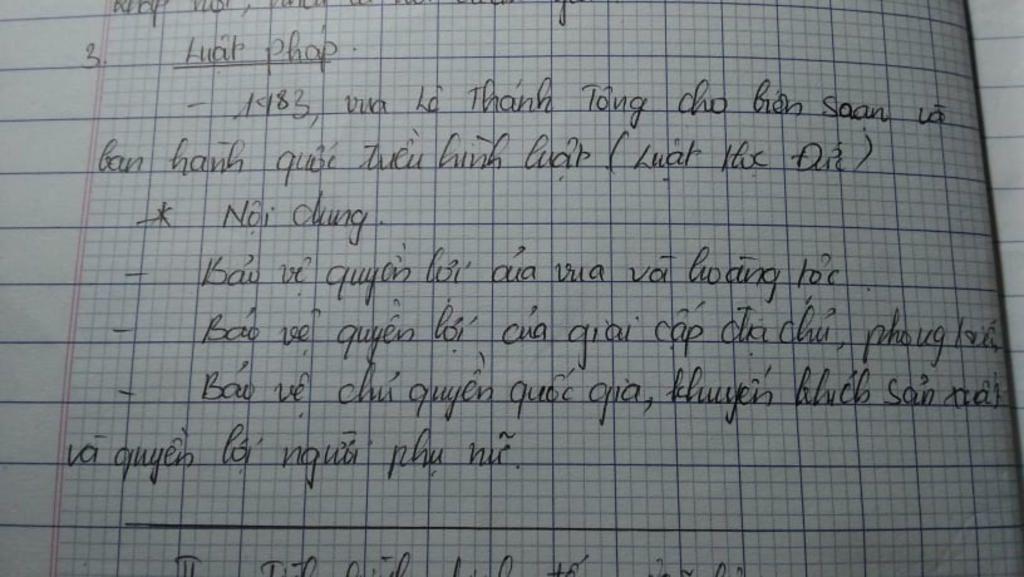 3. Luật pháp.
- 1483, vua Lê Thánh Tông cho biên soạn và
ban hành quốc triều hình luật (Luật Hồng Đức)
* Nội dung.
- Bảo vệ quyền lợi của vua và hoàng tộc.
- Bảo vệ quyền lợi của giai cấp địa chủ, phong kiến
- Bảo vệ chủ quyền quốc gia, khuyến khích sản xuất
và quyền lợi người phụ nữ.
II